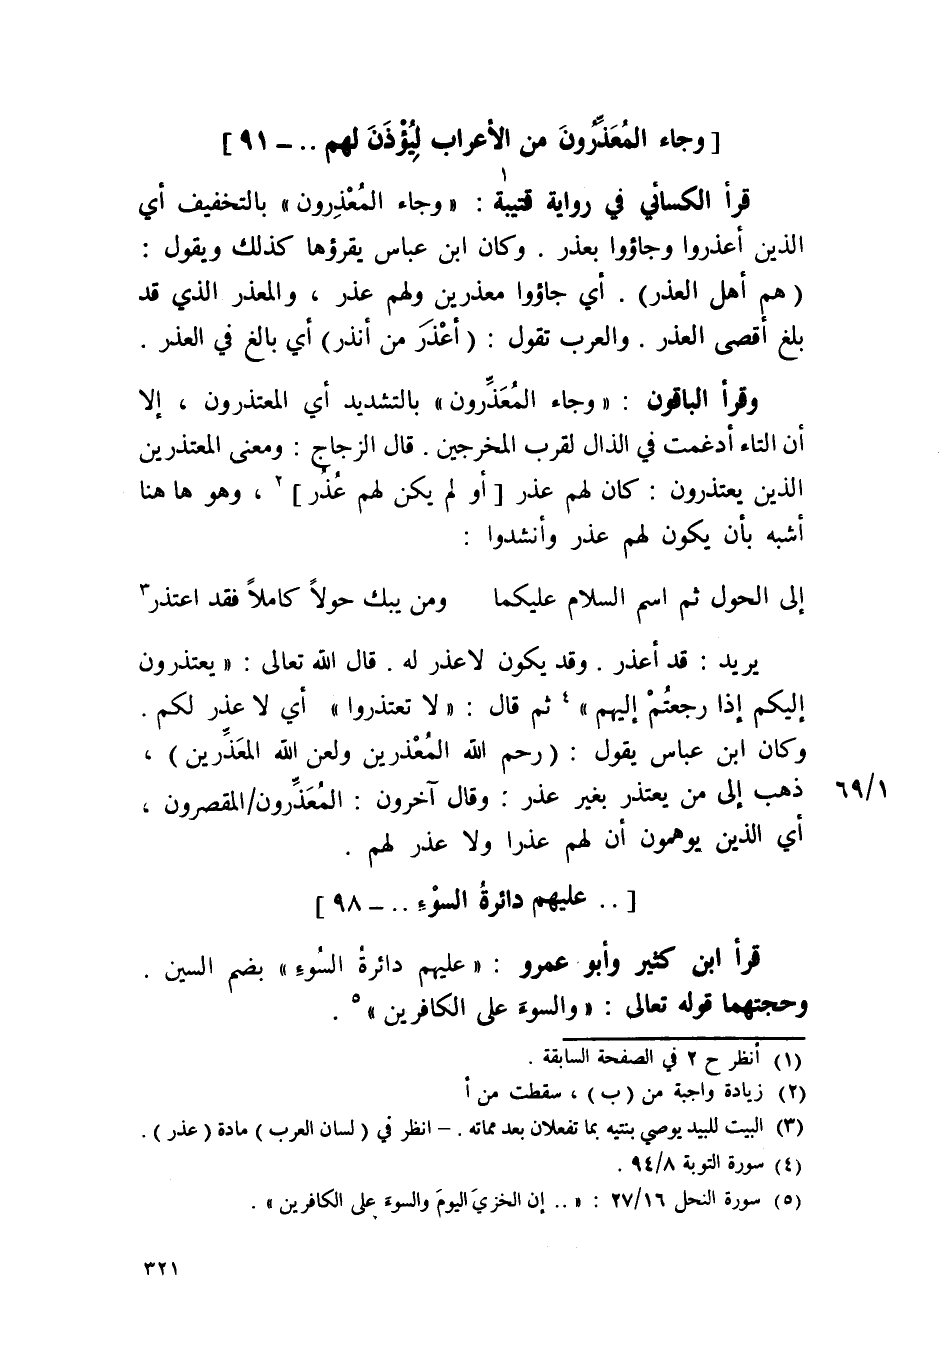 [ وجاء المُعَذِّرُونَ من الأعراب لِيُؤْذَنَ لهم .. – ٩١ ]
قرأ الكسائي في رواية قتيبة١ : « وجاء المُعْذِرون » بالتخفيف أي
الذين أعذروا وجاؤوا بعذر . وكان ابن عباس يقرؤها كذلك ويقول :
( هم أهل العذر) . أي جاؤوا معذرين ولهم عذر ، والمعذر الذي قد
بلغ أقصى العذر . والعرب تقول : ( أعْذَرَ من أنذر) أي بالغ في العذر .
وقرأ الباقون : « وجاء المُعَذِّرون » بالتشديد أي المعتذرون ، إلا
أن التاء أدغمت في الذال لقرب المخرجين . قال الزجاج : ومعنى المعتذرين
الذين يعتذرون : كان لهم عذر [ أو لم يكن لهم عُذُر ] ٢ ، وهو ها هنا
أشبه بأن يكون لهم عذر وأنشدوا :
إلى الحول ثم اسم السلام عليكما ومن يبك حولاً كاملاً فقد اعتذر٣
يريد : قد أعذر . وقد يكون لاعذر له . قال الله تعالى : « يعتذرون
إليكم إذا رجعتُمْ إليهم » ٤ ثم قال : « لا تعتذروا » أي لا عذر لكم .
وكان ابن عباس يقول : ( رحم الله المُعْذرين ولعن الله المعَذِّرين ) ،
ذهب إلى من يعتذر بغير عذر : وقال آخرون : المُعَذِّرون/المقصرون ، ٦٩/١
أي الذين يوهمون أن لهم عذرا ولا عذر لهم .
[ .. عليهم دائرةُ السوْءِ .. – ٩٨ ]
قرأ ابن كثير وأبو عمرو : « عليهم دائرةُ السُوءِ » بضم السين .
وحجتهما قوله تعالى : « والسوءَ على الكافرين » ٥ .
(١) أنظر ح ٢ في الصفحة السابقة .
(٢) زيادة واجبة من ( ب ) ، سقطت من أ
(٣) البيت للبيد يوصي بنتيه بما تفعلان بعد مماته . – انظر في ( لسان العرب ) مادة ( عذر ) .
(٤) سورة التوبة ٩٤/٨ .
(٥) سورة النحل ٢٧/١٦ : « .. إن الخزيَ اليومَ والسوءَ على الكافرين » .
٣٢١